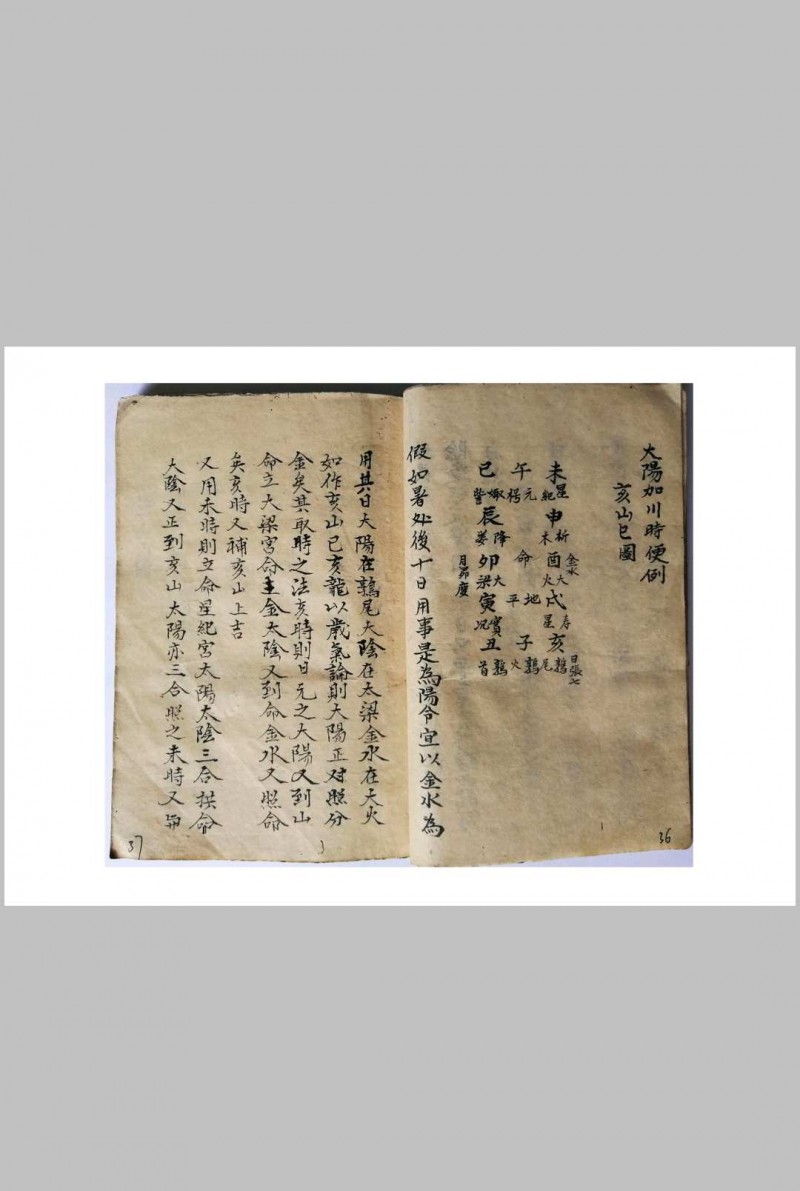 太陽加川時便例
亥山巳圖
未 星紀
申 析木
酉 大火 金水
戌 寿星
亥 鶉尾 日張七
午 元枵
命
地平
子 鶉火
巳 娵訾
辰 降婁
卯 大梁 月昴度
寅 實沉
丑 鶉首
假如暑处後十日用事是為陽令宜以金水為
36
用其日大陽在鶉尾大陰在太梁金水在大火
如作亥山巳亥龍以歲氣論則大陽正对照分
金矣其取時之法亥時則日元之大陽又到山
命立大梁宮命主金太陰又到命金水又照命
矣亥時又補亥山上吉
又用未時則立命星紀宮太陽太陰三合拱命
大陰又正到亥山太陽亦三合照之未時又與
37